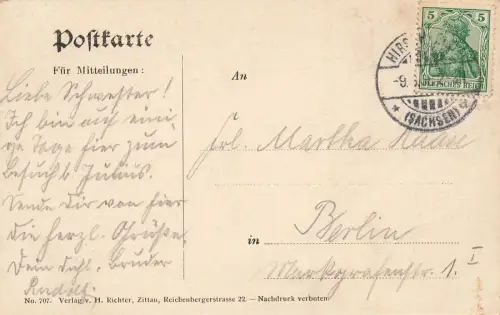 Postkarte
Für Mitteilungen:
An
Liebe Schwester!
Ich bin auf eini-
ge Tage hier zum
Besuch b. Julius.
Sende Dir von hier
die herzl. Grüße.
Dein dichl. Bruder
Rudolf.
Frl. Martha Krause
in Berlin
Markgrafenstr. 1. I
5 5
DEUTSCHES REICH
HIRS
-9.
* (SACHSEN) *
No. 707. Verlag v. H. Richter, Zittau, Reichenbergerstrasse 22. — Nachdruck verboten.